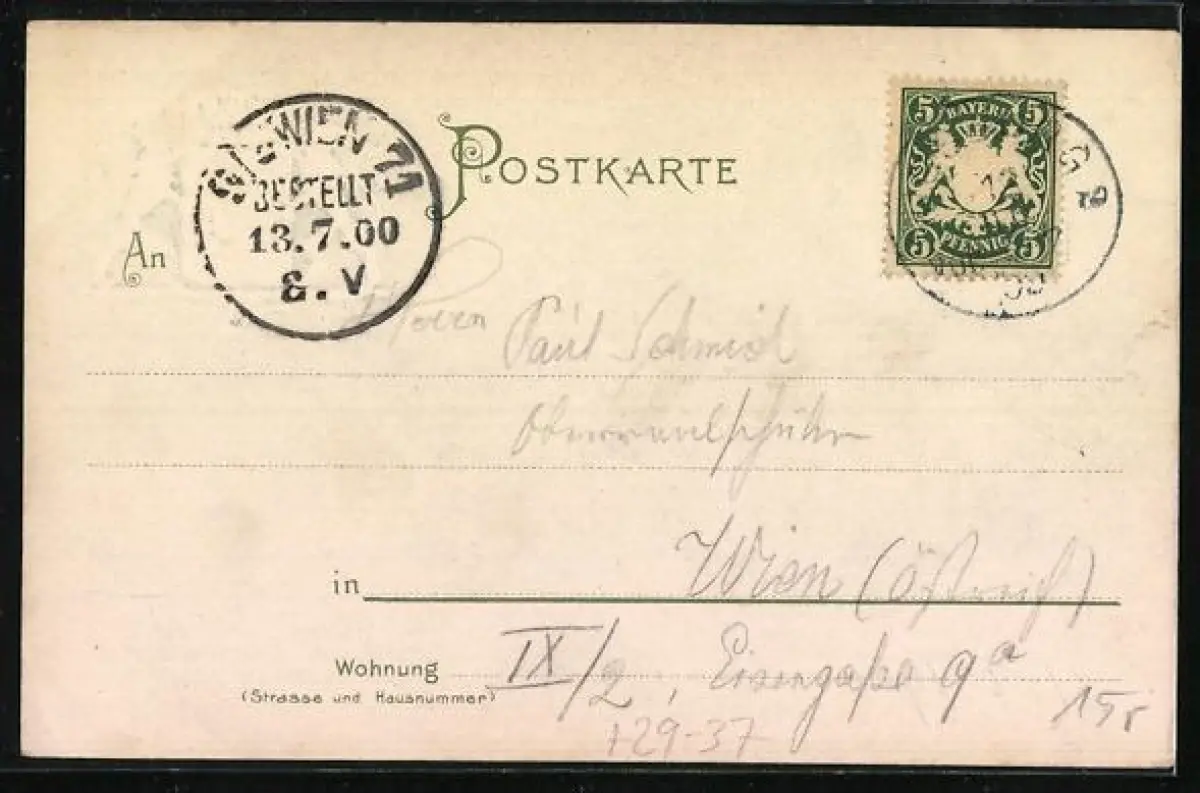 9/3 WIEN 71
BESTELLT
13.7.00
8.V
POSTKARTE
5 BAYERN 5
5 PFENNIG 5
An
Herrn Paul Schmid
in Wien (Östreich)
Wohnung IX/2, Eisengasse 9a
(Strasse und Hausnummer)
129-37
15,